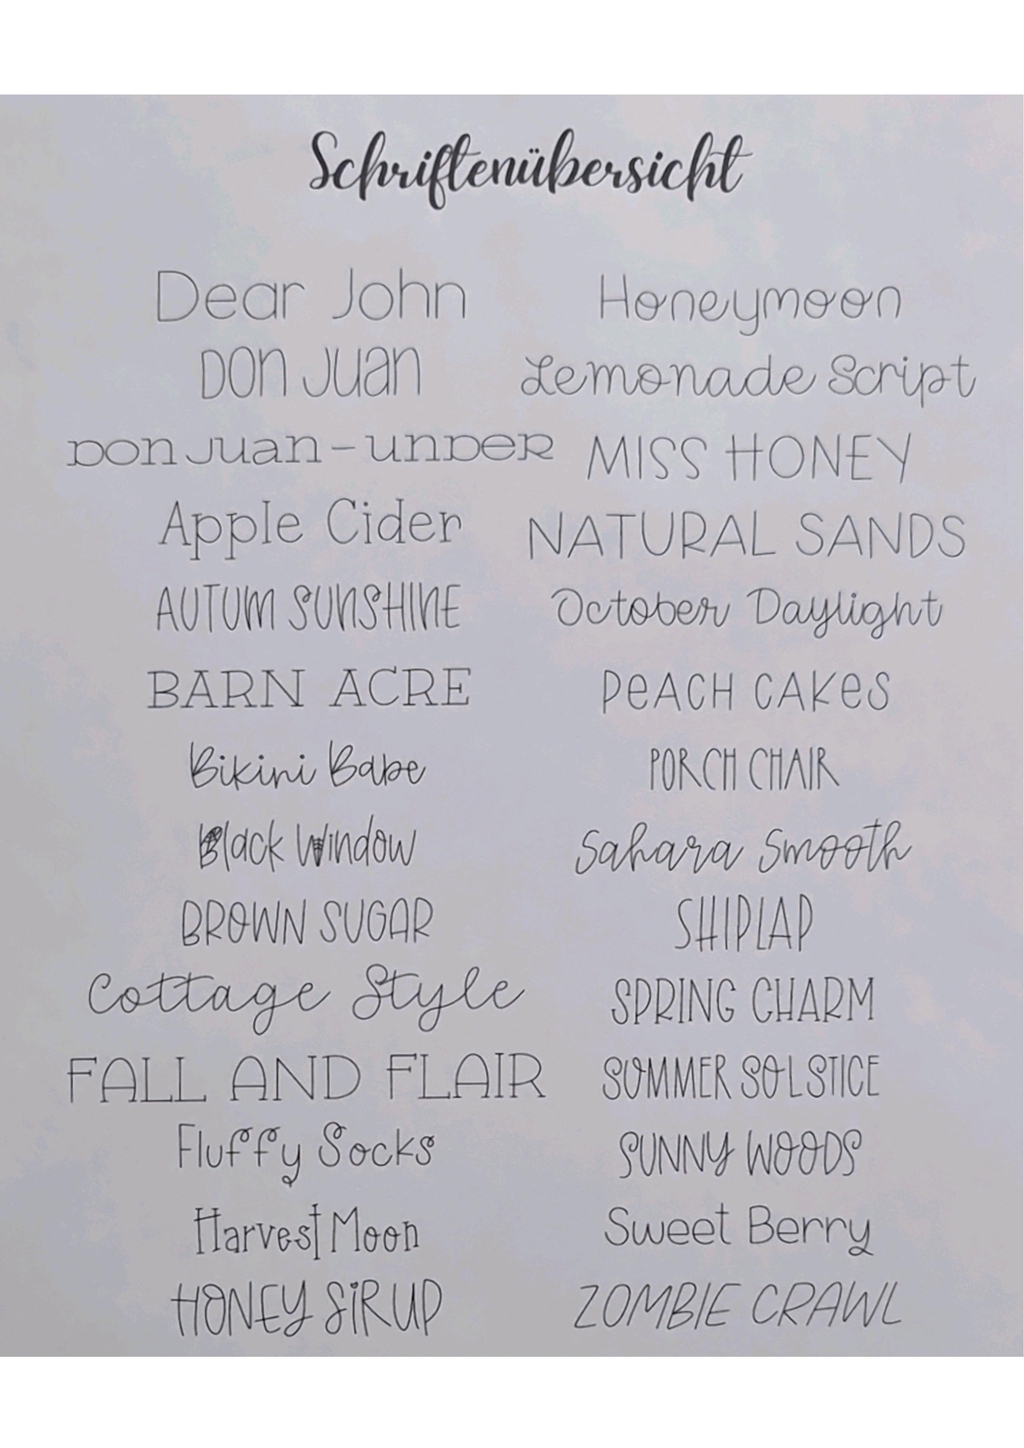 Schriftenübersicht
Dear John
DON JUAN
DON JUAN - UNDER
Apple Cider
AUTUM SUNSHINE
BARN ACRE
Bikini Babe
Black Window
BROWN SUGAR
Cottage Style
FALL AND FLAIR
Fluffy Socks
Harvest Moon
HONEY SiRUP
Honeymoon
Lemonade Script
MISS HONEY
NATURAL SANDS
October Daylight
PeACH CAKeS
PORCH CHAIR
Sahara Smooth
SHIPLAP
SPRING CHARM
SUMMER SOLSTICE
SUNNY WOODS
Sweet Berry
ZOMBIE CRAWL